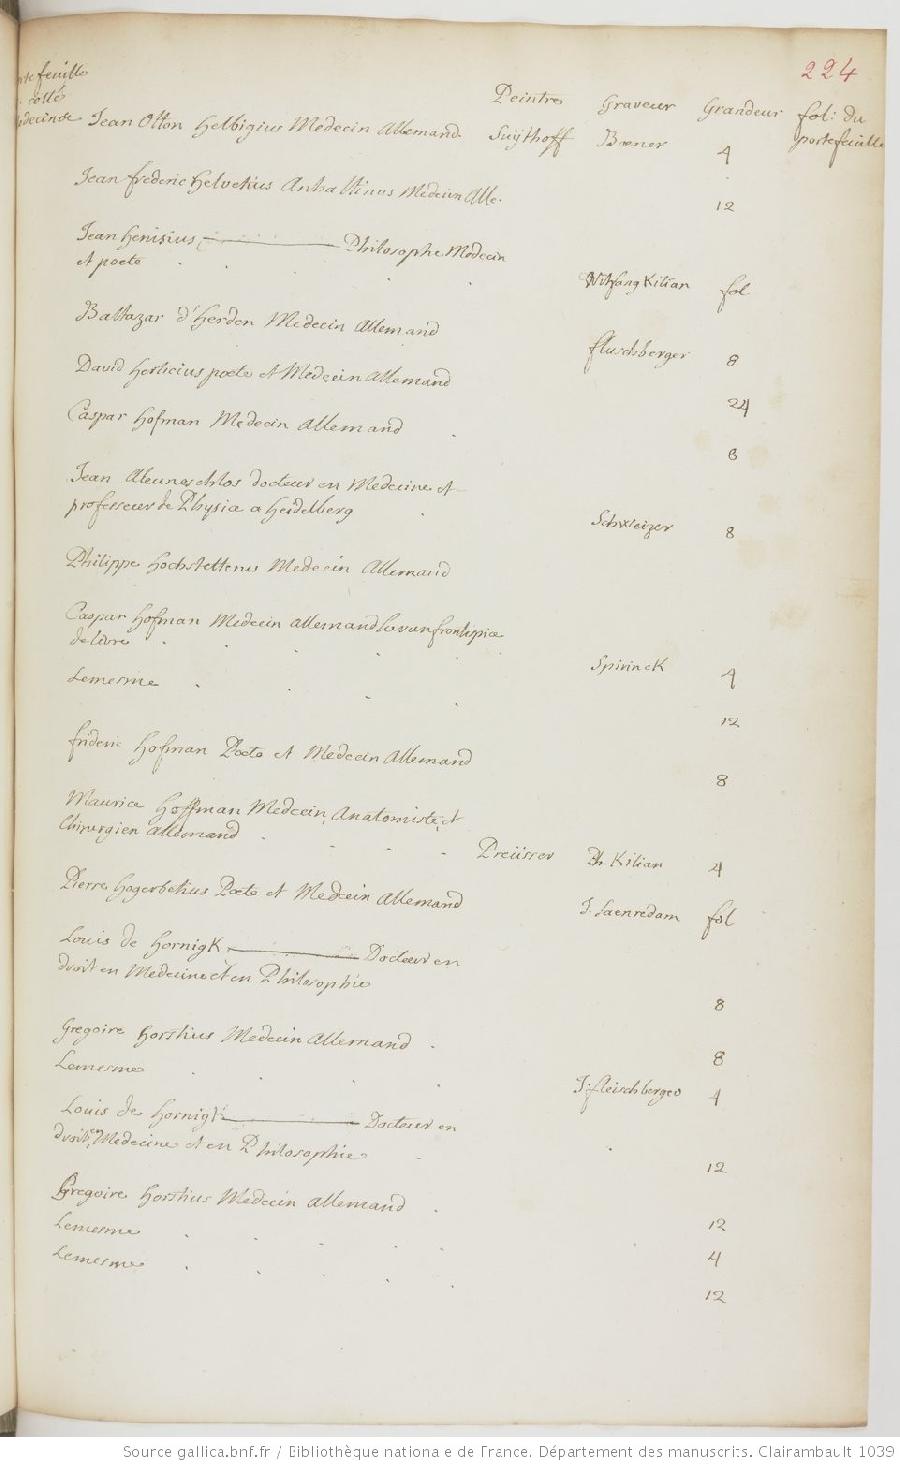 224
Peintre Graveur Grandeur fol: du
portefeuille
Jean Otton Helbigius Medecin Allemand Suÿthoff Bœner 4
Jean frederic Helvetius Anhaltinus Medecin Alle. 12
Jean Henisius Philosophe Medecin
et poete Wolfang Kilian fol
Baltazar d'Herden Medecin Allemand fluschberger 8
David Herlicius poete et Medecin Allemand 24
Caspar Hofman Medecin Allemand 8
Jean docteur en Medecine et
professeur de Physic a Heidelberg Schweizer 8
Philippe Hochstettenus Medecin Allemand
Caspar Hofman Medecin allemand frontispice
de livre Spirinck 4
Lemesme 12
frideric Hofman Poete et Medecin Allemand 8
Maurice Hoffman Medecin, Anatomiste, et
Chirurgien allemand Preüsser Ph. Kilian 4
Pierre Hogerbetius Poete et Medecin Allemand J. Saenredam fol
Louis de Hornigk Docteur en
droit en Medecine et en Philosophie 8
Gregoire Horstius Medecin Allemand 8
Lemesme J. fleischberger 4
Louis de Hornigk Docteur en
droit, en Medecine et en Philosophie 12
Gregoire Horstius Medecin allemand 12
Lemesme 4
Lemesme 12
Source gallica.bnf.fr / Bibliothèque nationale de France. Département des manuscrits. Clairambault 1039